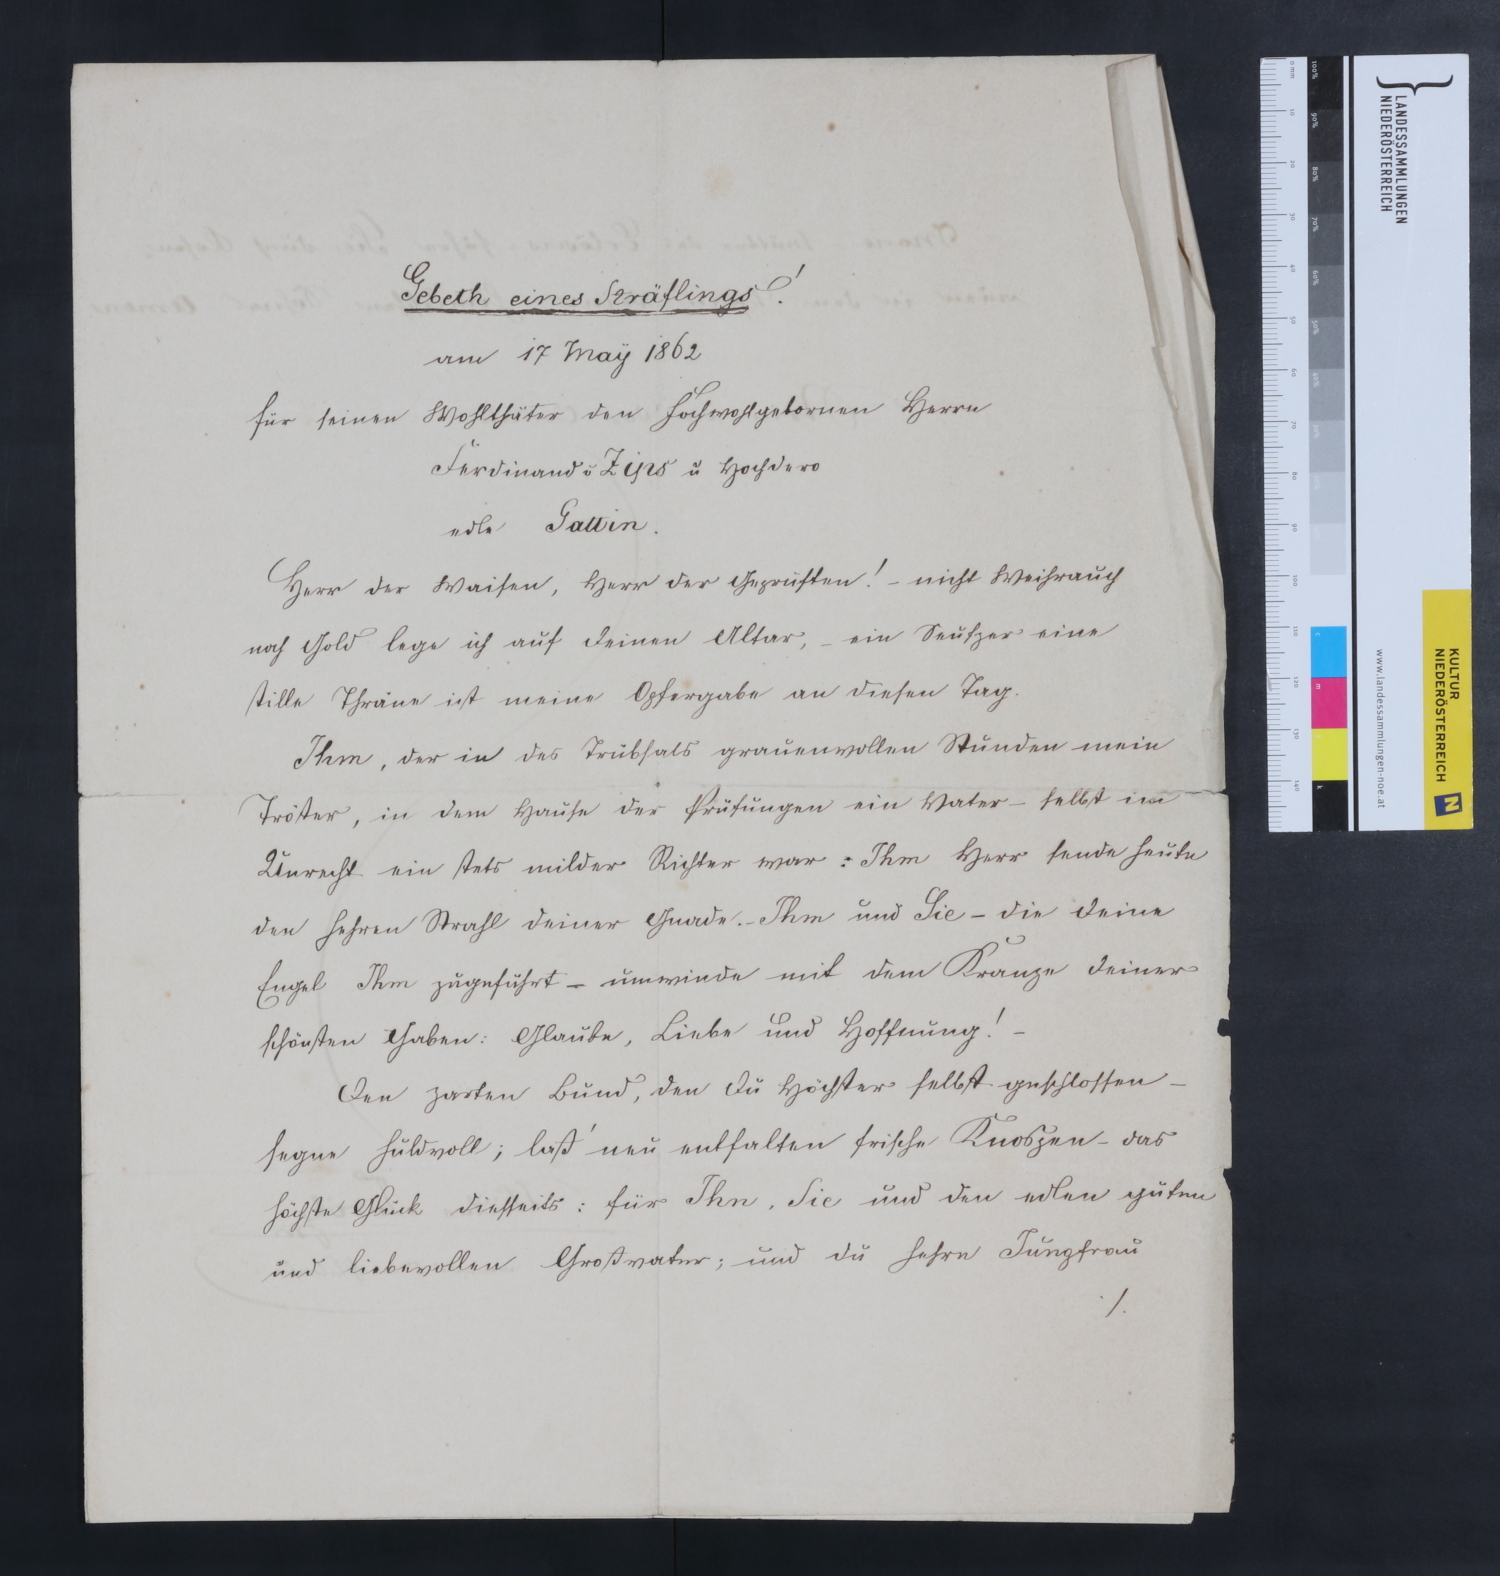 Gebeth eines Sträflings!
am 17 Maÿ 1862
für seinen Wohlthäter den Hochwohlgebornen Herrn
Ferdinand v Zips u Hochdero
edle Gattin.
Herr der Waisen, Herr der Geprüften! - nicht Weihrauch
noch Gold lege ich auf deinen Altar, - ein Seufzer eine
stille Thräne ist meine Opfergabe an diesen Tag.
Ihm, der in des Trübsals grauenvollen Stunden mein
Tröster, in dem Hause der Prüfungen ein Vater - selbst im
Unrecht ein stets milder Richter war: Ihm Herr sende heute
den hehren Strahl deiner Gnade. - Ihm und Sie - die deine
Engel Ihm zugeführt - umwinde mit dem Kranze deiner
schönsten Gaben: Glaube, Liebe und Hoffnung! -
Den zarten Bund, den Du Höchster selbst geschlossen -
segne huldvoll; laß' neu entfalten frische Knospen - das
höchste Glück diesseits: für Ihn, Sie und den edlen guten
und liebevollen Großvater; und du hehre Jungfrau
./.
LANDESSAMMLUNGEN
NIEDERÖSTERREICH
www.landessammlungen-noe.at
KULTUR
NIEDERÖSTERREICH